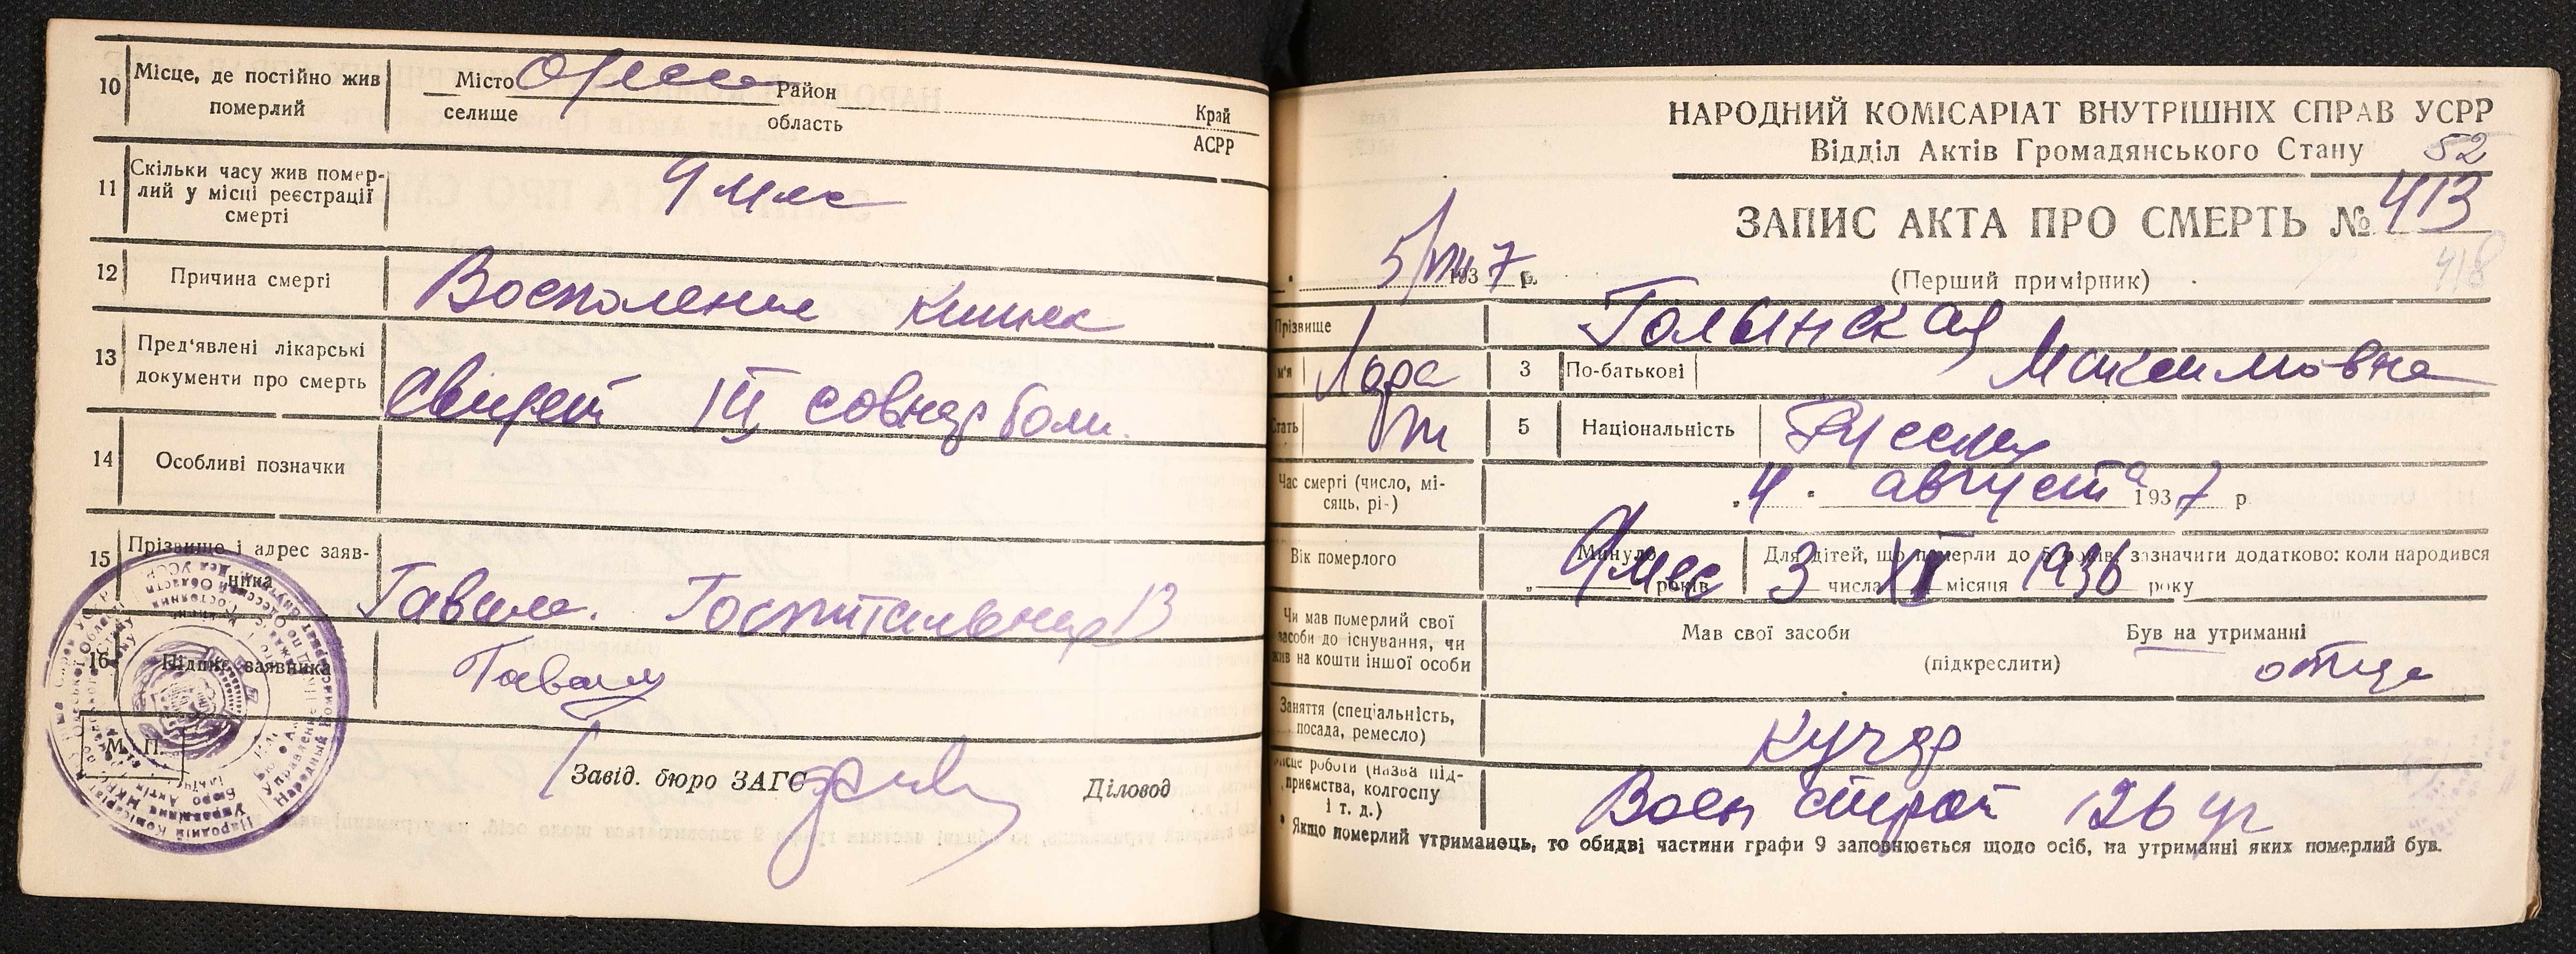 10 Місце, де постійно жив померлий
Місто Одесса Район
селище область
Край
АСРР
11 Скільки часу жив помер-
лий у місці реєстрації
смерті
9 мес
12 Причина смерті
Воспаление кишек
13 Пред'явлені лікарські
документи про смерть
Свидет III совнар боль.
14 Особливі позначки
15 Прізвище і адрес заяв-
ника
Госпитальная 13
16 Підпис заявника
М. П.
Завід. бюро ЗАГС
Діловод
НАРОДНИЙ КОМІСАРІАТ ВНУТРІШНІХ СПРАВ УСРР
Відділ Актів Громадянського Стану 52
ЗАПИС АКТА ПРО СМЕРТЬ № 413
418
5/VIII 1937 р.
(Перший примірник)
Прізвище Голынская
м'я Лора 3 По-батькові Максимовна
тать ж 5 Національність Русская
Час смерті (число, мі-
сяць, рі-)
"4" августа 1937 р.
Вік померлого
Минуло 9 мес років
Для дітей, що померли до 5 років, зазначити додатково: коли народився
3 числа XI місяця 1936 року
Чи мав померлий свої
засоби до існування, чи
жив на кошти іншої особи
Мав свої засоби Був на утриманні
(підкреслити) отца
Заняття (спеціальність,
посада, ремесло)
Кучер
місце роботи (назва під-
приємства, колгоспу
і т. д.)
Воен строй 126 уч
* Якщо померлий утриманець, то обидві частини графи 9 заповнюється щодо осіб, на утриманні яких померлий був.